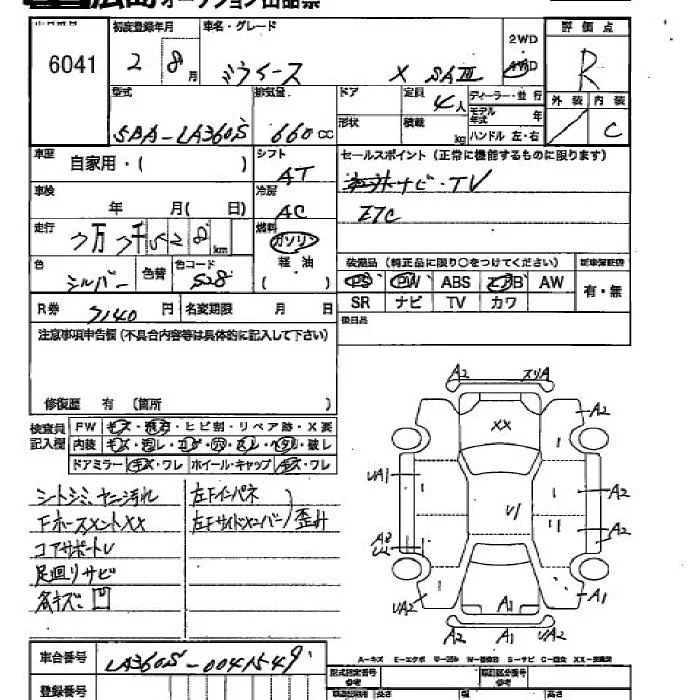 広島オークション出品票
出品番号 6041
初度登録年月 2 8月
車名・グレード ミライース X SAⅢ
2WD
4WD
評価点 R
外装 内装 C
型式 5BA-LA360S
排気量 660cc
ドア
形状
定員 4人
積載 kg
ディーラー・並行
モデル年式 年
ハンドル 左・右
車歴 自家用・( )
シフト AT
車検 年 月( 日)
冷房 AC
セールスポイント(正常に機能するものに限ります)
ナビ・TV
ETC
走行 7万 7千 5 2 8 km
燃料 ガソリン
軽油
( )
色 シルバー
色替
色コード S28
装備品(純正品に限り○をつけてください)
新車保証書
PS PW ABS エアB AW
SR ナビ TV カワ
有・無
R券 7140円
名変期限 月 日
後日品
注意事項申告欄(不具合内容等は具体的に記入して下さい)
修復歴 有(箇所 )
検査員記入欄
FW キズ・飛石・ヒビ割・リペア跡・X要
内装 キズ・汚レ・コゲ・穴・スレ・ヘタリ・破レ
ドアミラー キズ・ワレ ホイール・キャップ キズ・ワレ
シートシミ、ヤニ汚れ
FホースメントXX
コアサポートU
足廻りサビ
各キズ、凹
左Fインパネ
左Fサイドメンバー
歪み
A2 スリA
XX
A2
UA1
A2
A2
U1
A3
A1
A1
UA2
A2 A1 UA2
車台番号 LA360S-0041549
登録番号
A-キズ E-エクボ U-凹み W-補修跡 S-サビ C-腐食 XX-交換済
型式指定番号
類別区分番号
長さ
幅
高さ